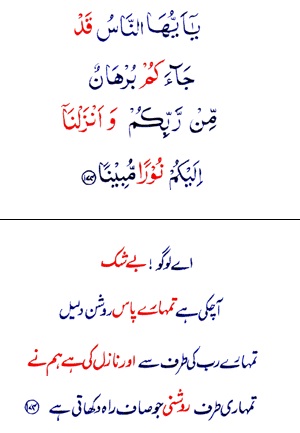 يٰۤاَيُّهَا النَّاسُ قَدْ
جَآءَكُمْ بُرْهَانٌ
مِّنْ رَّبِّكُمْ وَ اَنْزَلْنَاۤ
اِلَيْكُمْ نُوْرًا مُّبِيْنًا ﴿۱۷۴﴾
اے لوگو ! بے شک
آچکی ہے تمہارے پاس روشن دلیل
تمہارے رب کی طرف سے اور نازل کی ہے ہم نے
تمہاری طرف روشنی جو صاف راہ دکھاتی ہے ﴿۱۷۴﴾